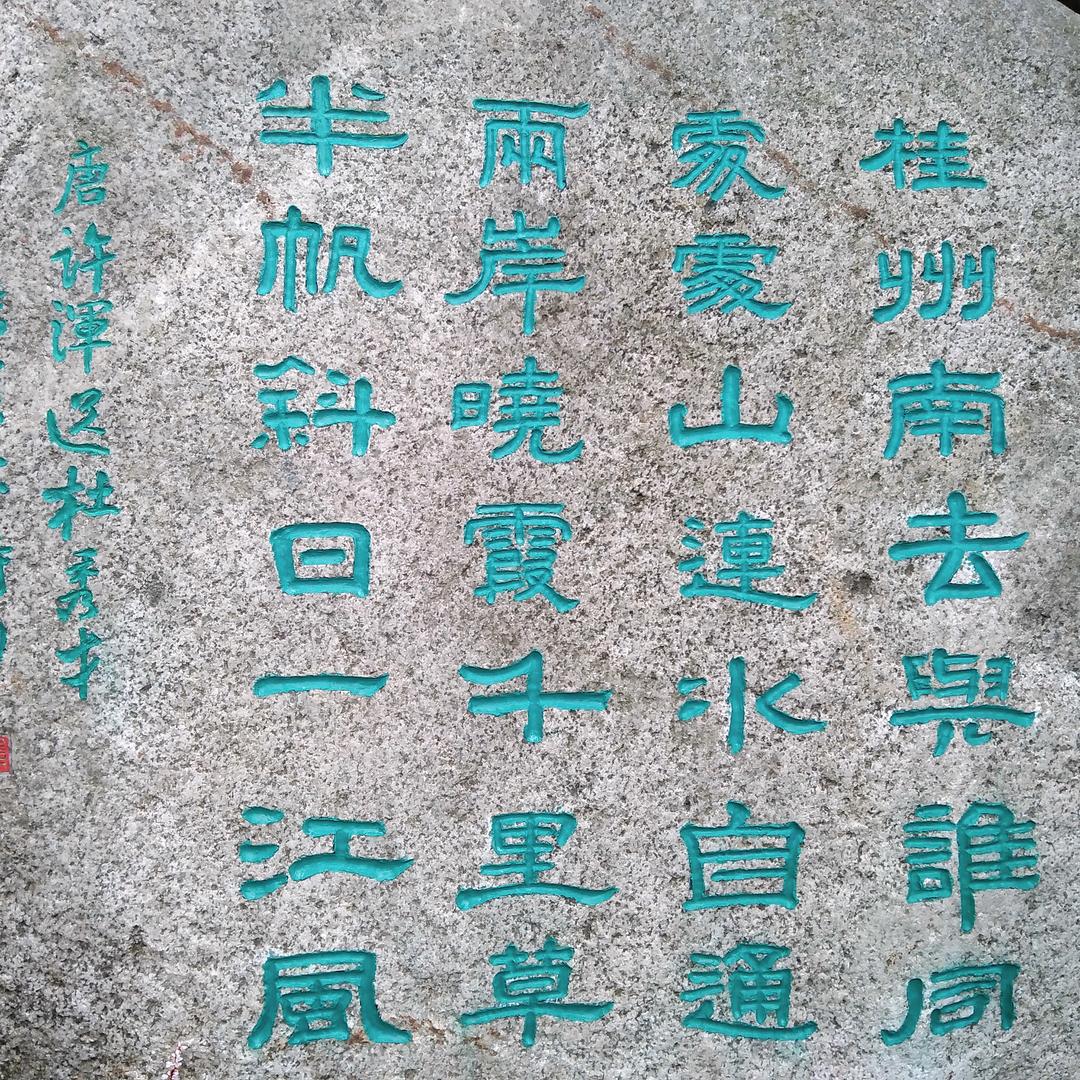 桂州南去與誰同
處處山連水自通
兩岸曉霞千里草
半帆斜日一江風
唐許渾送杜秀才